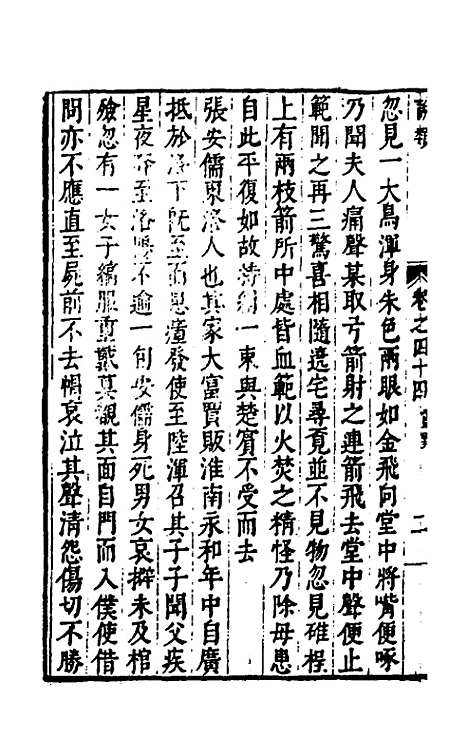 說類
卷之四十四
二
忽見一大鳥渾身朱色兩眼如金飛向堂中將嘴便啄
乃聞夫人痛聲某取弓箭射之連箭飛去堂中聲便止
範聞之再三驚喜相隨遶宅尋覔並不見物忽見碓桯
上有兩枝箭所中處皆血範以火焚之精怪乃除毋患
自此平復如故 一束與楚賓不受而去
張安儒 洛人也其家大富賈販淮南永和年中自廣
抵於洛下既至而 瘡發使至陸渾召其子子聞父疾
星夜奔至洛 不逾一旬安儒身死男女哀擗未及棺
殮忽有一女子縞服 戴冪䍦其面自門而入僕使借
問亦不應直至屍前不去帽哀泣其聲清怨傷切不勝